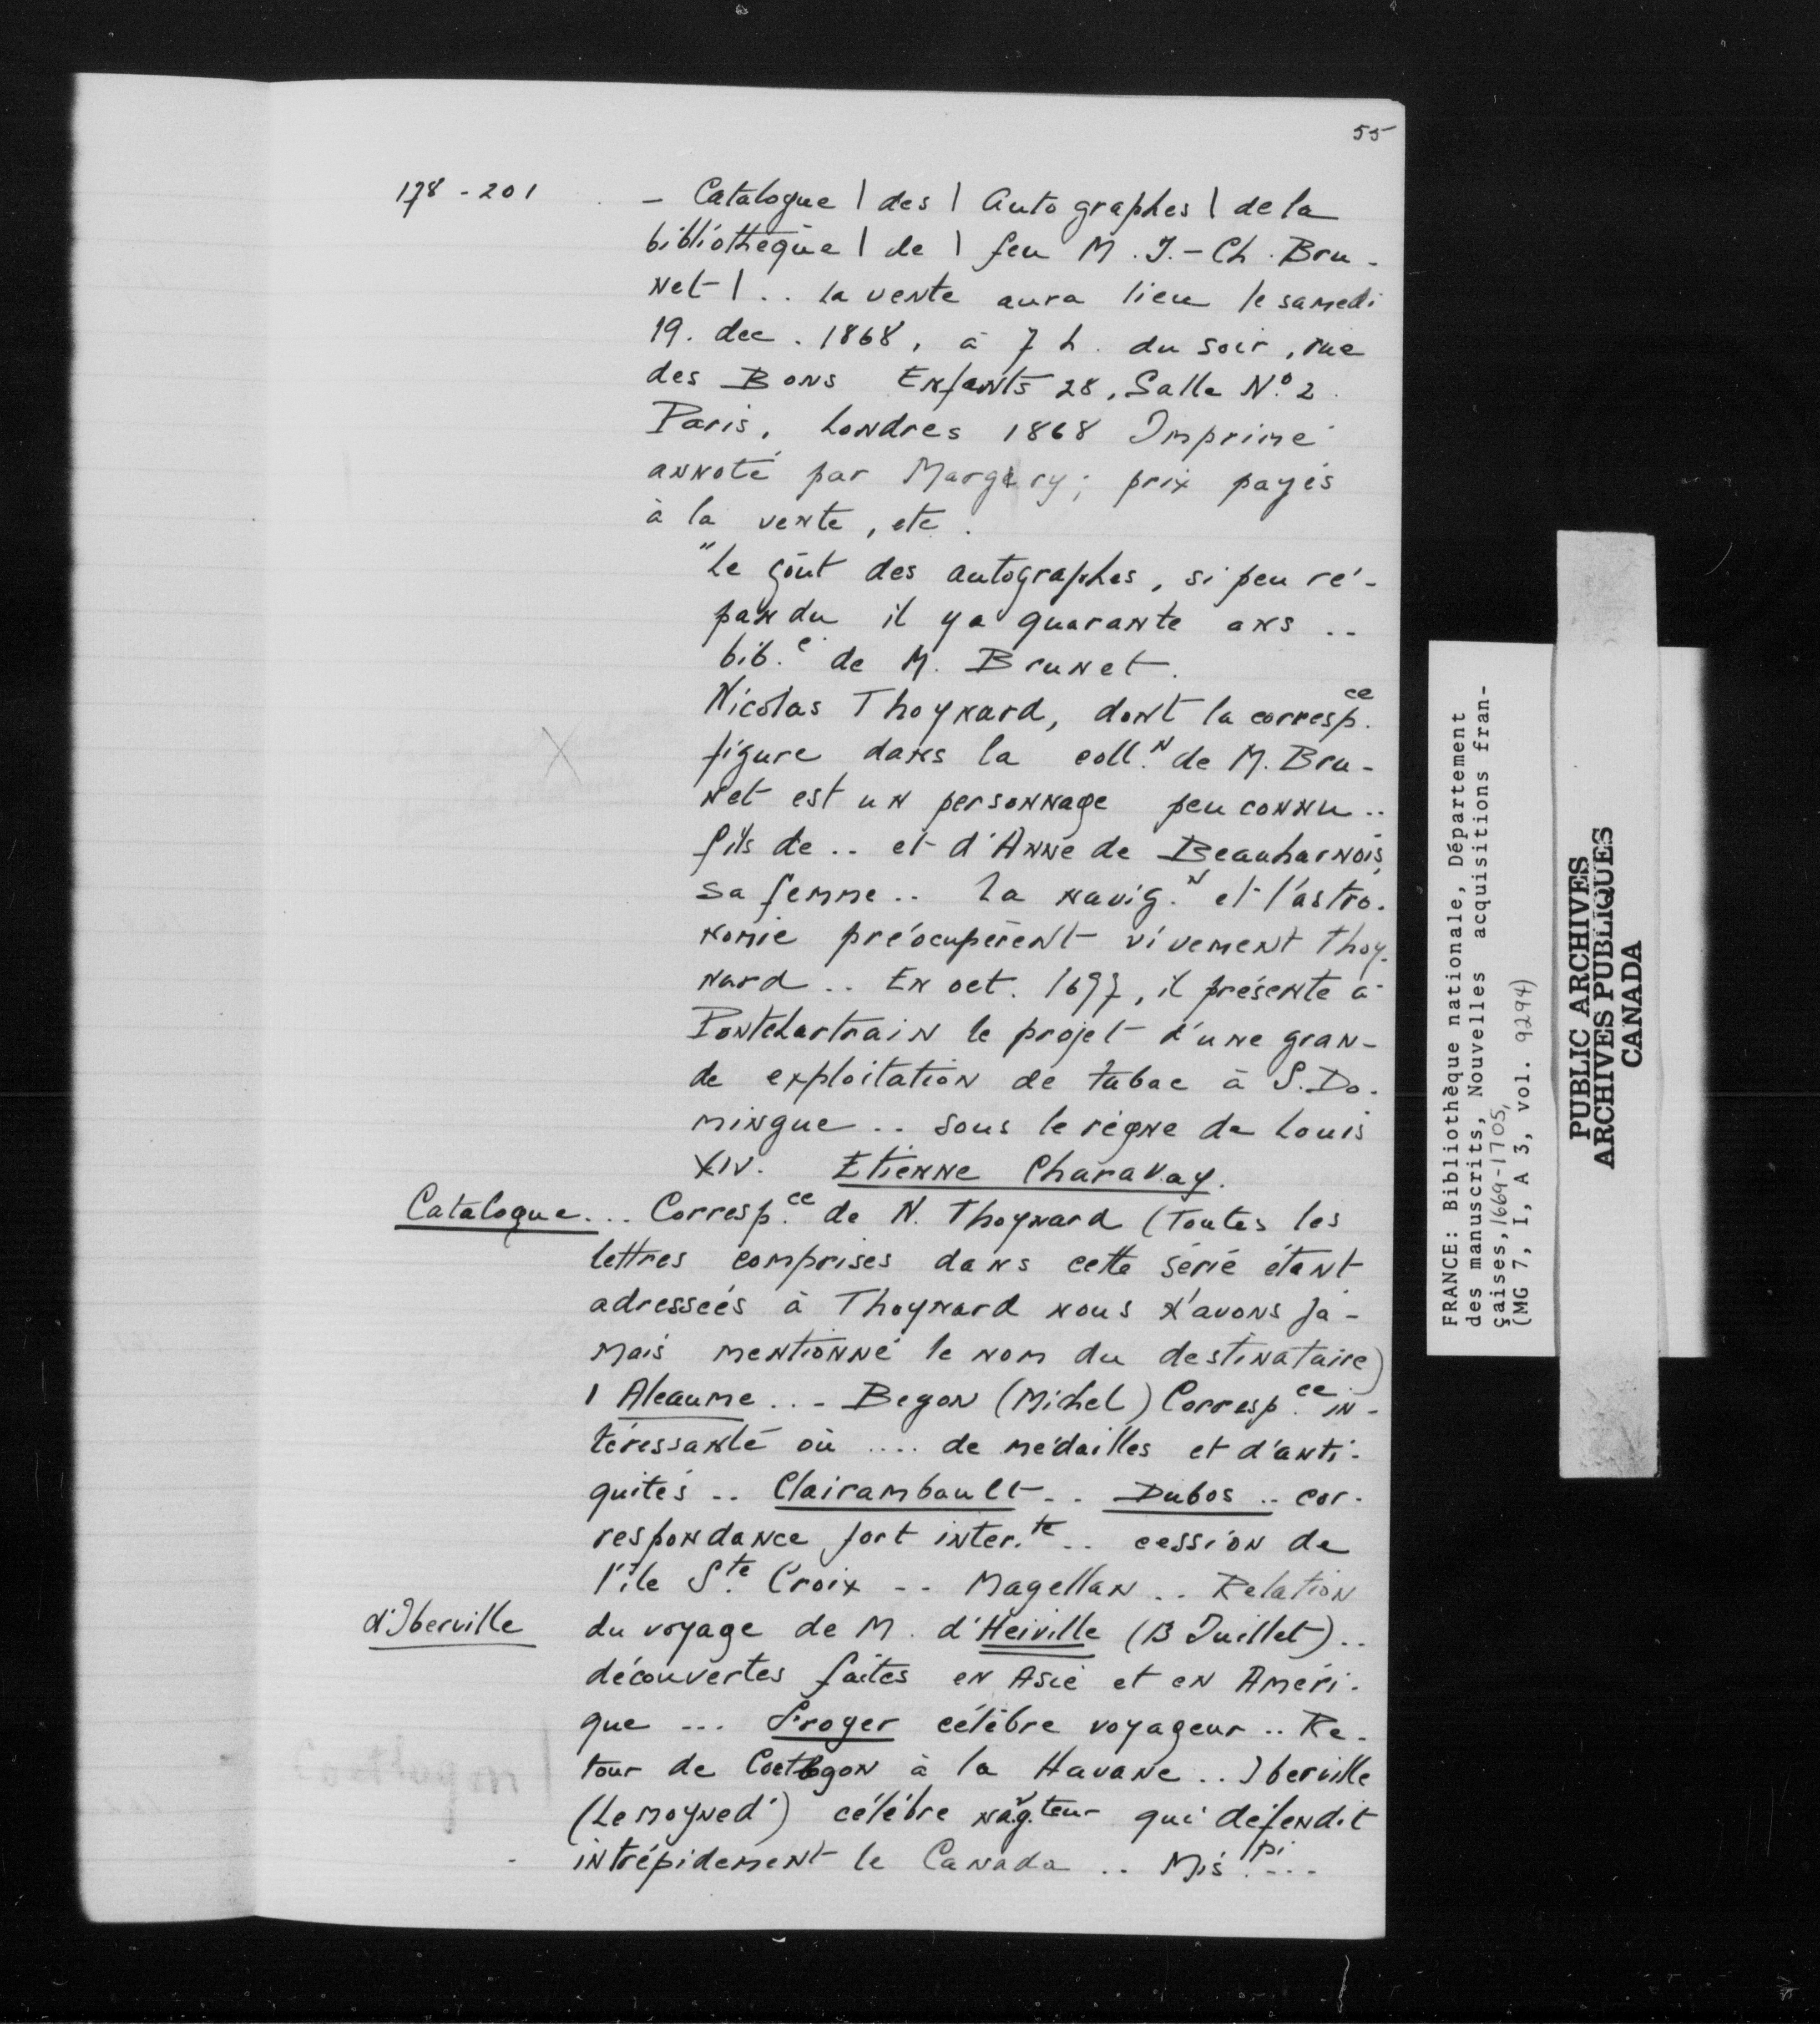 55
178 - 201 - Catalogue | des | Autographes | de la
bibliothèque | de | feu M. J.-Ch. Bru-
net | .. La vente aura lieu le samedi
19. dec. 1868, à 7 h. du soir, rue
des Bons Enfants 28, Salle N.º 2.
Paris, Londres 1868 Imprimé
annoté par Margry; prix payés
à la vente, etc.
"Le goût des autographes, si peu ré-
pandu il y a quarante ans ..
bib.e de M. Brunet.
Nicolas Thoynard, dont la corresp.ce
figure dans la coll.n de M. Bru-
net est un personnage peu connu ..
fils de .. et d'Anne de Beauharnois,
sa femme .. La navig.n et l'astro-
nomie préocupèrent vivement Thoy-
nard .. En oct. 1697, il présente à
Pontchartrain le projet d'une gran-
de exploitation de tabac à S. Do-
mingue .. sous le règne de Louis
XIV. Etienne Charavay.
Catalogue... Corresp.ce de N. Thoynard (Toutes les
lettres comprises dans cette série étant
adressées à Thoynard nous n'avons ja-
mais mentionné le nom du destinataire)
1 Aleaume .. - Begon (Michel) Corresp.ce in-
téressante où .... de médailles et d'anti-
quités .. Clairambault .. Dubos .. cor-
respondance fort inter.te .. cession de
l'île S.te Croix -- Magellan .. Relation
d'Iberville du voyage de M. d'Heiville (13 Juillet) ..
découvertes faites en Asie et en Améri-
que ... Froger célèbre voyageur .. Re-
tour de Coetlogon à la Havane .. Iberville
(Le moyne d') célèbre navg.teur qui défendit
intrépidement le Canada .. Mis.pi ...
Coetlogon
FRANCE: Bibliothèque nationale, Département
des manuscrits, Nouvelles acquisitions fran-
çaises, 1669-1705,
(MG 7, I, A 3, vol. 9294)
PUBLIC ARCHIVES
ARCHIVES PUBLIQUES
CANADA